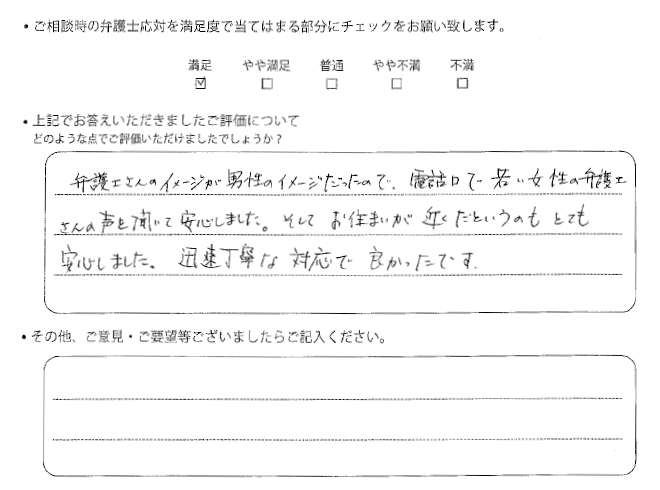 ・ご相談時の弁護士応対を満足度で当てはまる部分にチェックをお願い致します。
満足 やや満足 普通 やや不満 不満
☑ □ □ □ □
・上記でお答えいただきましたご評価について
どのような点でご評価いただけましたでしょうか？
弁護士さんのイメージが男性のイメージだったので、電話口で若い女性の弁護士
さんの声を聞いて安心しました。そして お住まいが近くだというのもとても
安心しました、迅速丁寧な対応で良かったです.
・その他、ご意見・ご要望等ございましたらご記入ください。